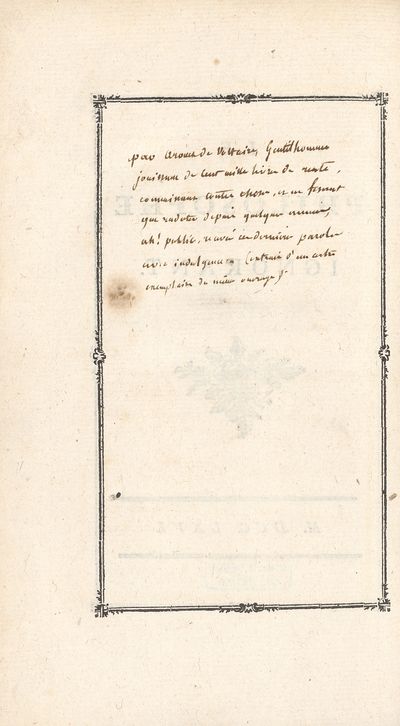 par Arouet de Voltaire, Gentilhomme
jouissant de Cent mille livres de rente,
connaissant toutes choses, et ne faisant
que radoter depuis quelques années,
ah! public, recevez ces dernieres paroles
avec indulgence. (extrait d'un autre
exemplaire du même ouvrage).